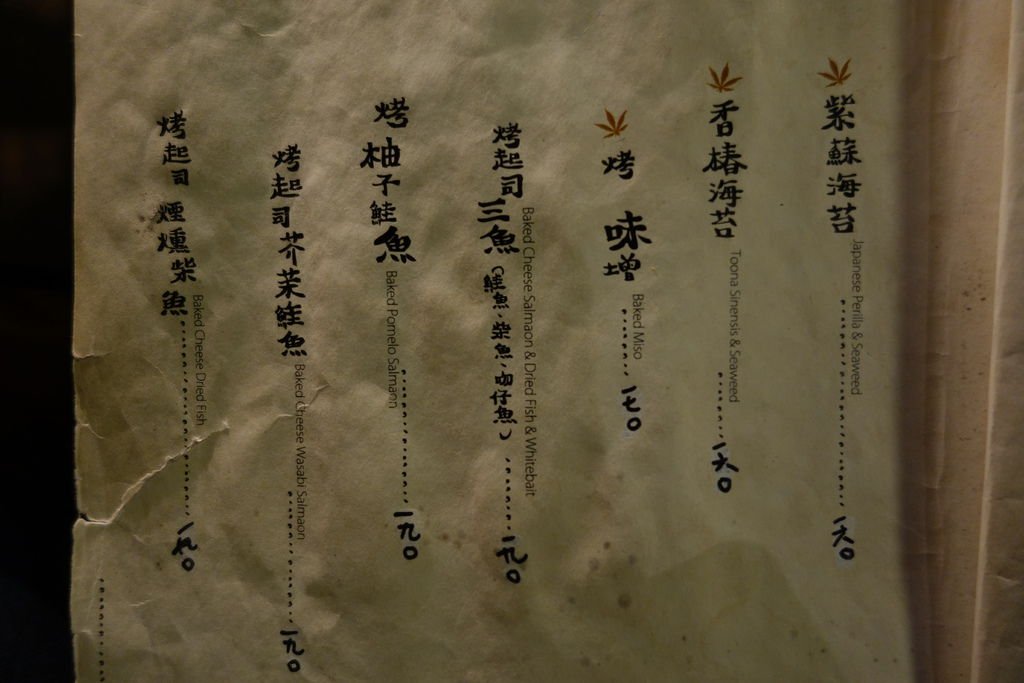 紫蘇海苔
Japanese Perilla & Seaweed
一六0
香椿海苔
Toona Sinensis & Seaweed
一六0
烤味增
Baked Miso
一七0
烤起司三魚(鮭魚、柴魚、吻仔魚)
Baked Cheese Salmaon & Dried Fish & Whitebait
一九0
烤柚子鮭魚
Baked Pomelo Salmaon
一九0
烤起司芥茉鮭魚
Baked Cheese Wasabi Salmaon
一九0
烤起司煙燻柴魚
Baked Cheese Dried Fish
一九0